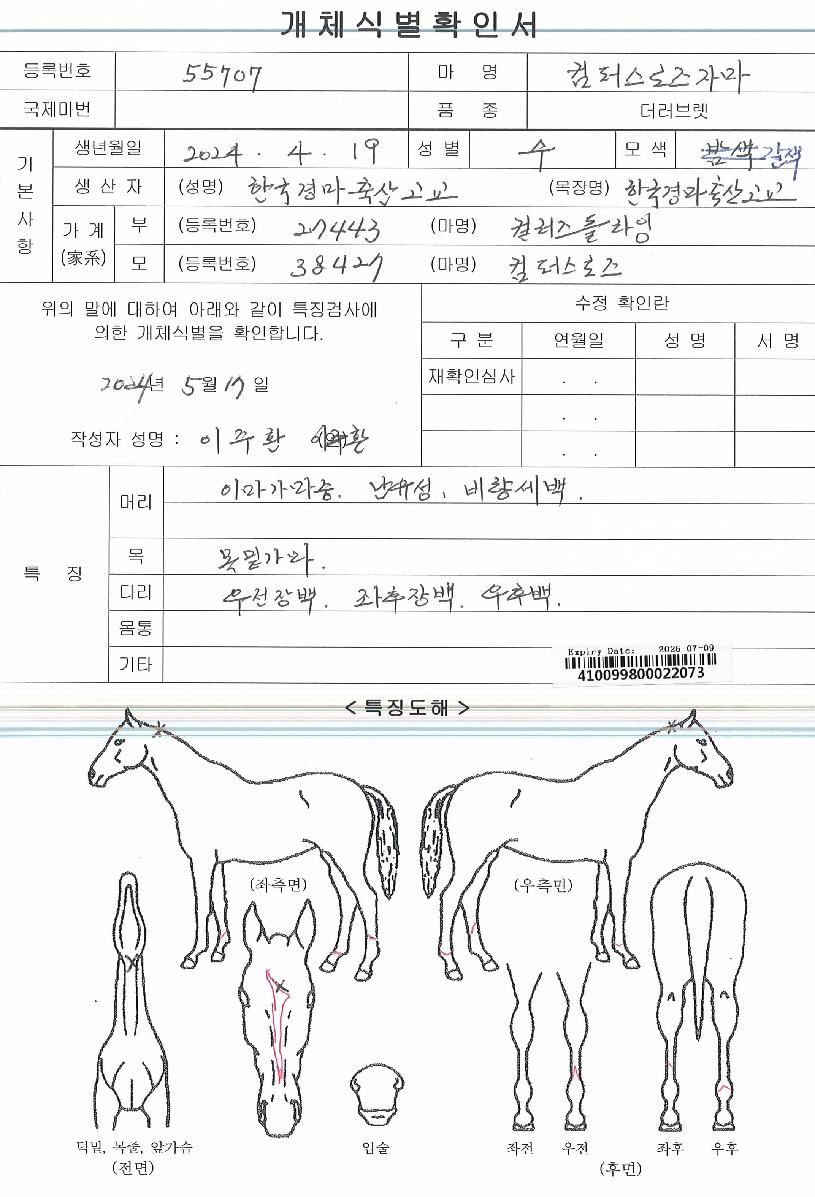 개체식별확인서
등록번호 55707 마 명 컴터스로즈자마
국제마번 품 종 더러브렛
기본사항
생년월일 2024 . 4 . 19 성별 수 모색 밤색 갈색
생산자 (성명) 한국경마축산고교 (목장명) 한국경마축산고교
가계 (家系) 부 (등록번호) 27443 (마명) 컬러즈플라잉
모 (등록번호) 38427 (마명) 컴터스로즈
위의 말에 대하여 아래와 같이 특징검사에
의한 개체식별을 확인합니다.
2024년 5월 17일
작성자 성명 : 이주환
수정 확인란
구분 연월일 성명 서명
재확인심사 . .
. .
. .
특 징
머리 이마가마중. 난대성. 비량세백.
목 목밑가마.
다리 우전장백. 좌후장백. 우후백.
몸통
기타
Expiry Date: 2026-07-09
410099800022073
<특징도해>
(좌측면) (우측면)
턱밑, 목줄, 앞가슴 입술 좌전 우전 좌후 우후
(전면) (후면)